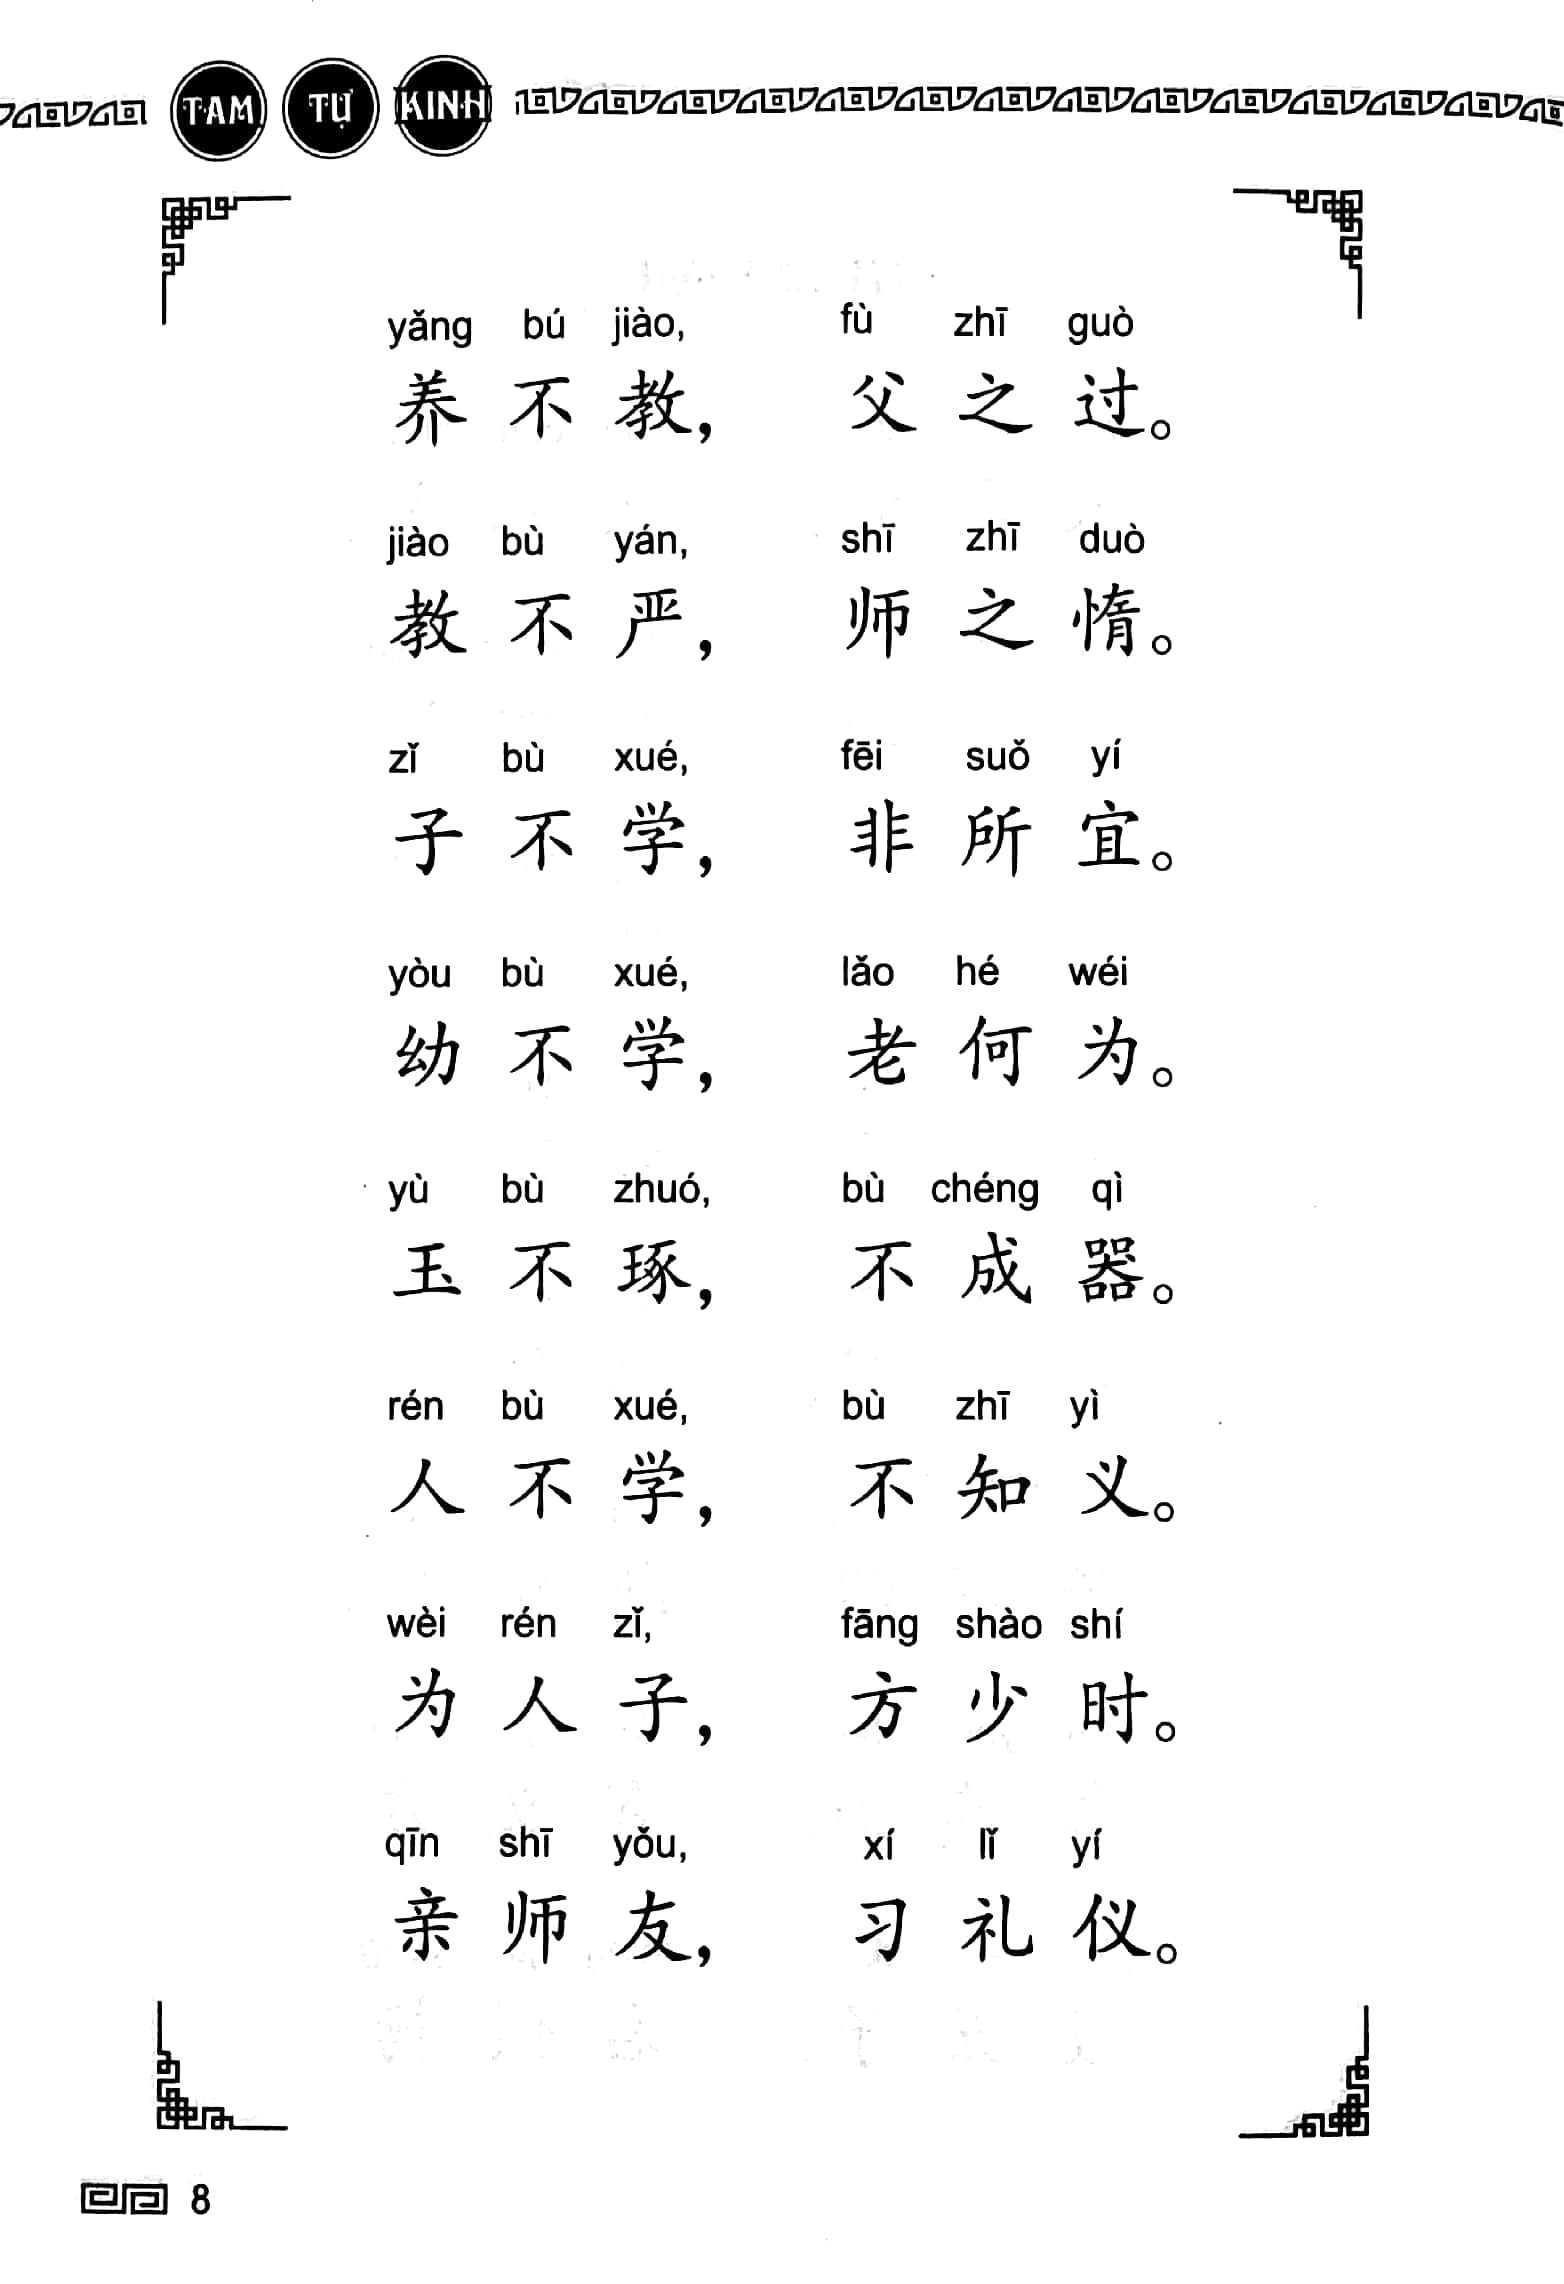 TAM TỰ KINH
yǎng bú jiào, fù zhī guò
养不教，父之过。
jiào bù yán, shī zhī duò
教不严，师之惰。
zǐ bù xué, fēi suǒ yí
子不学，非所宜。
yòu bù xué, lǎo hé wéi
幼不学，老何为。
yù bù zhuó, bù chéng qì
玉不琢，不成器。
rén bù xué, bù zhī yì
人不学，不知义。
wèi rén zǐ, fāng shào shí
为人子，方少时。
qīn shī yǒu, xí lǐ yí
亲师友，习礼仪。
8